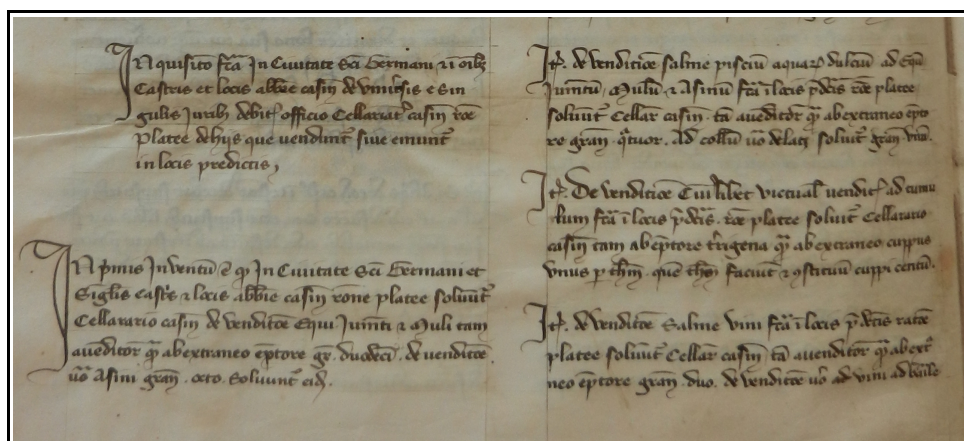 INquisito fca In Civitate Sci Germani ⁊ i oibȝ
Castris et locis abbie casin de univsis e Sin
gulis Juribȝ debit officio Cellariat casin roe
Platee de hijs que vendunt sive emunt
in locis predictis,
INpmis Inventu e qd In Civitate Sci Germani et
Siglis castis ⁊ locis abbie casin rone platee solvut
Cellarario casin de venditoe Equi Jumti ⁊ Muli tam
a venditor q ab extraneo eptore gr. duodeci. de venditoe
vo Asini gran. octo. Solvunt eid.
It. de venditoe salme pisciu aquar dulciu ad Equ
Jumtu. Mulu ⁊ Asinu fca i locis pdcis roe platee
solvut Cellar casin. ta a venditor q ab extraneo epto
re gran. qtuor. Ad collu vo delat solvit gran unu.
It. De venditoe Cuilibet victual vendit ad tumu
lum fca i locis pdcis. roe platee solvit Cellarario
casin tam ab eptore trigena q ab extraneo cuppus
unus p thm. que thm faciut ⁊ ostituut cuppi centu.
It. de venditoe Salme vini fca i locis pdcis ratoe
platee solvut Cellar casin. ta a venditor q ab ext
neo eptore gran. duo. de venditoe vo ad vini ad baile